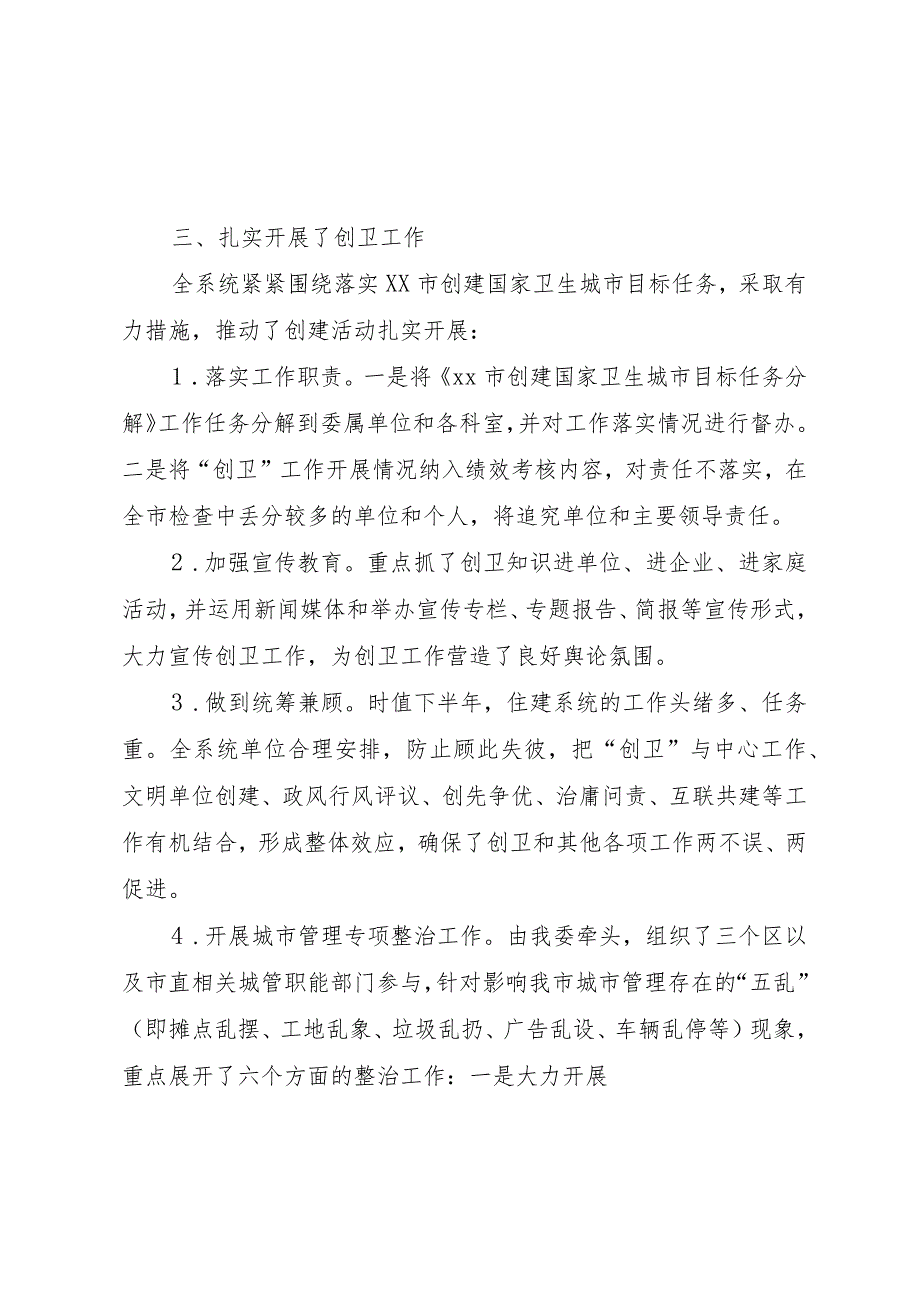 三、扎实开展了创卫工作
全系统紧紧围绕落实XX市创建国家卫生城市目标任务，采取有
力措施，推动了创建活动扎实开展：
1.落实工作职责。一是将《xx市创建国家卫生城市目标任务分
解》工作任务分解到委属单位和各科室，并对工作落实情况进行督办。
二是将“创卫”工作开展情况纳入绩效考核内容，对责任不落实，在
全市检查中丢分较多的单位和个人，将追究单位和主要领导责任。
2.加强宣传教育。重点抓了创卫知识进单位、进企业、进家庭
活动，并运用新闻媒体和举办宣传专栏、专题报告、简报等宣传形式，
大力宣传创卫工作，为创卫工作营造了良好舆论氛围。
3.做到统筹兼顾。时值下半年，住建系统的工作头绪多、任务
重。全系统单位合理安排，防止顾此失彼，把“创卫”与中心工作、
文明单位创建、政风行风评议、创先争优、治庸问责、互联共建等工
作有机结合，形成整体效应，确保了创卫和其他各项工作两不误、两
促进。
4.开展城市管理专项整治工作。由我委牵头，组织了三个区以
及市直相关城管职能部门参与，针对影响我市城市管理存在的“五乱”
（即摊点乱摆、工地乱象、垃圾乱扔、广告乱设、车辆乱停等）现象，
重点展开了六个方面的整治工作：一是大力开展